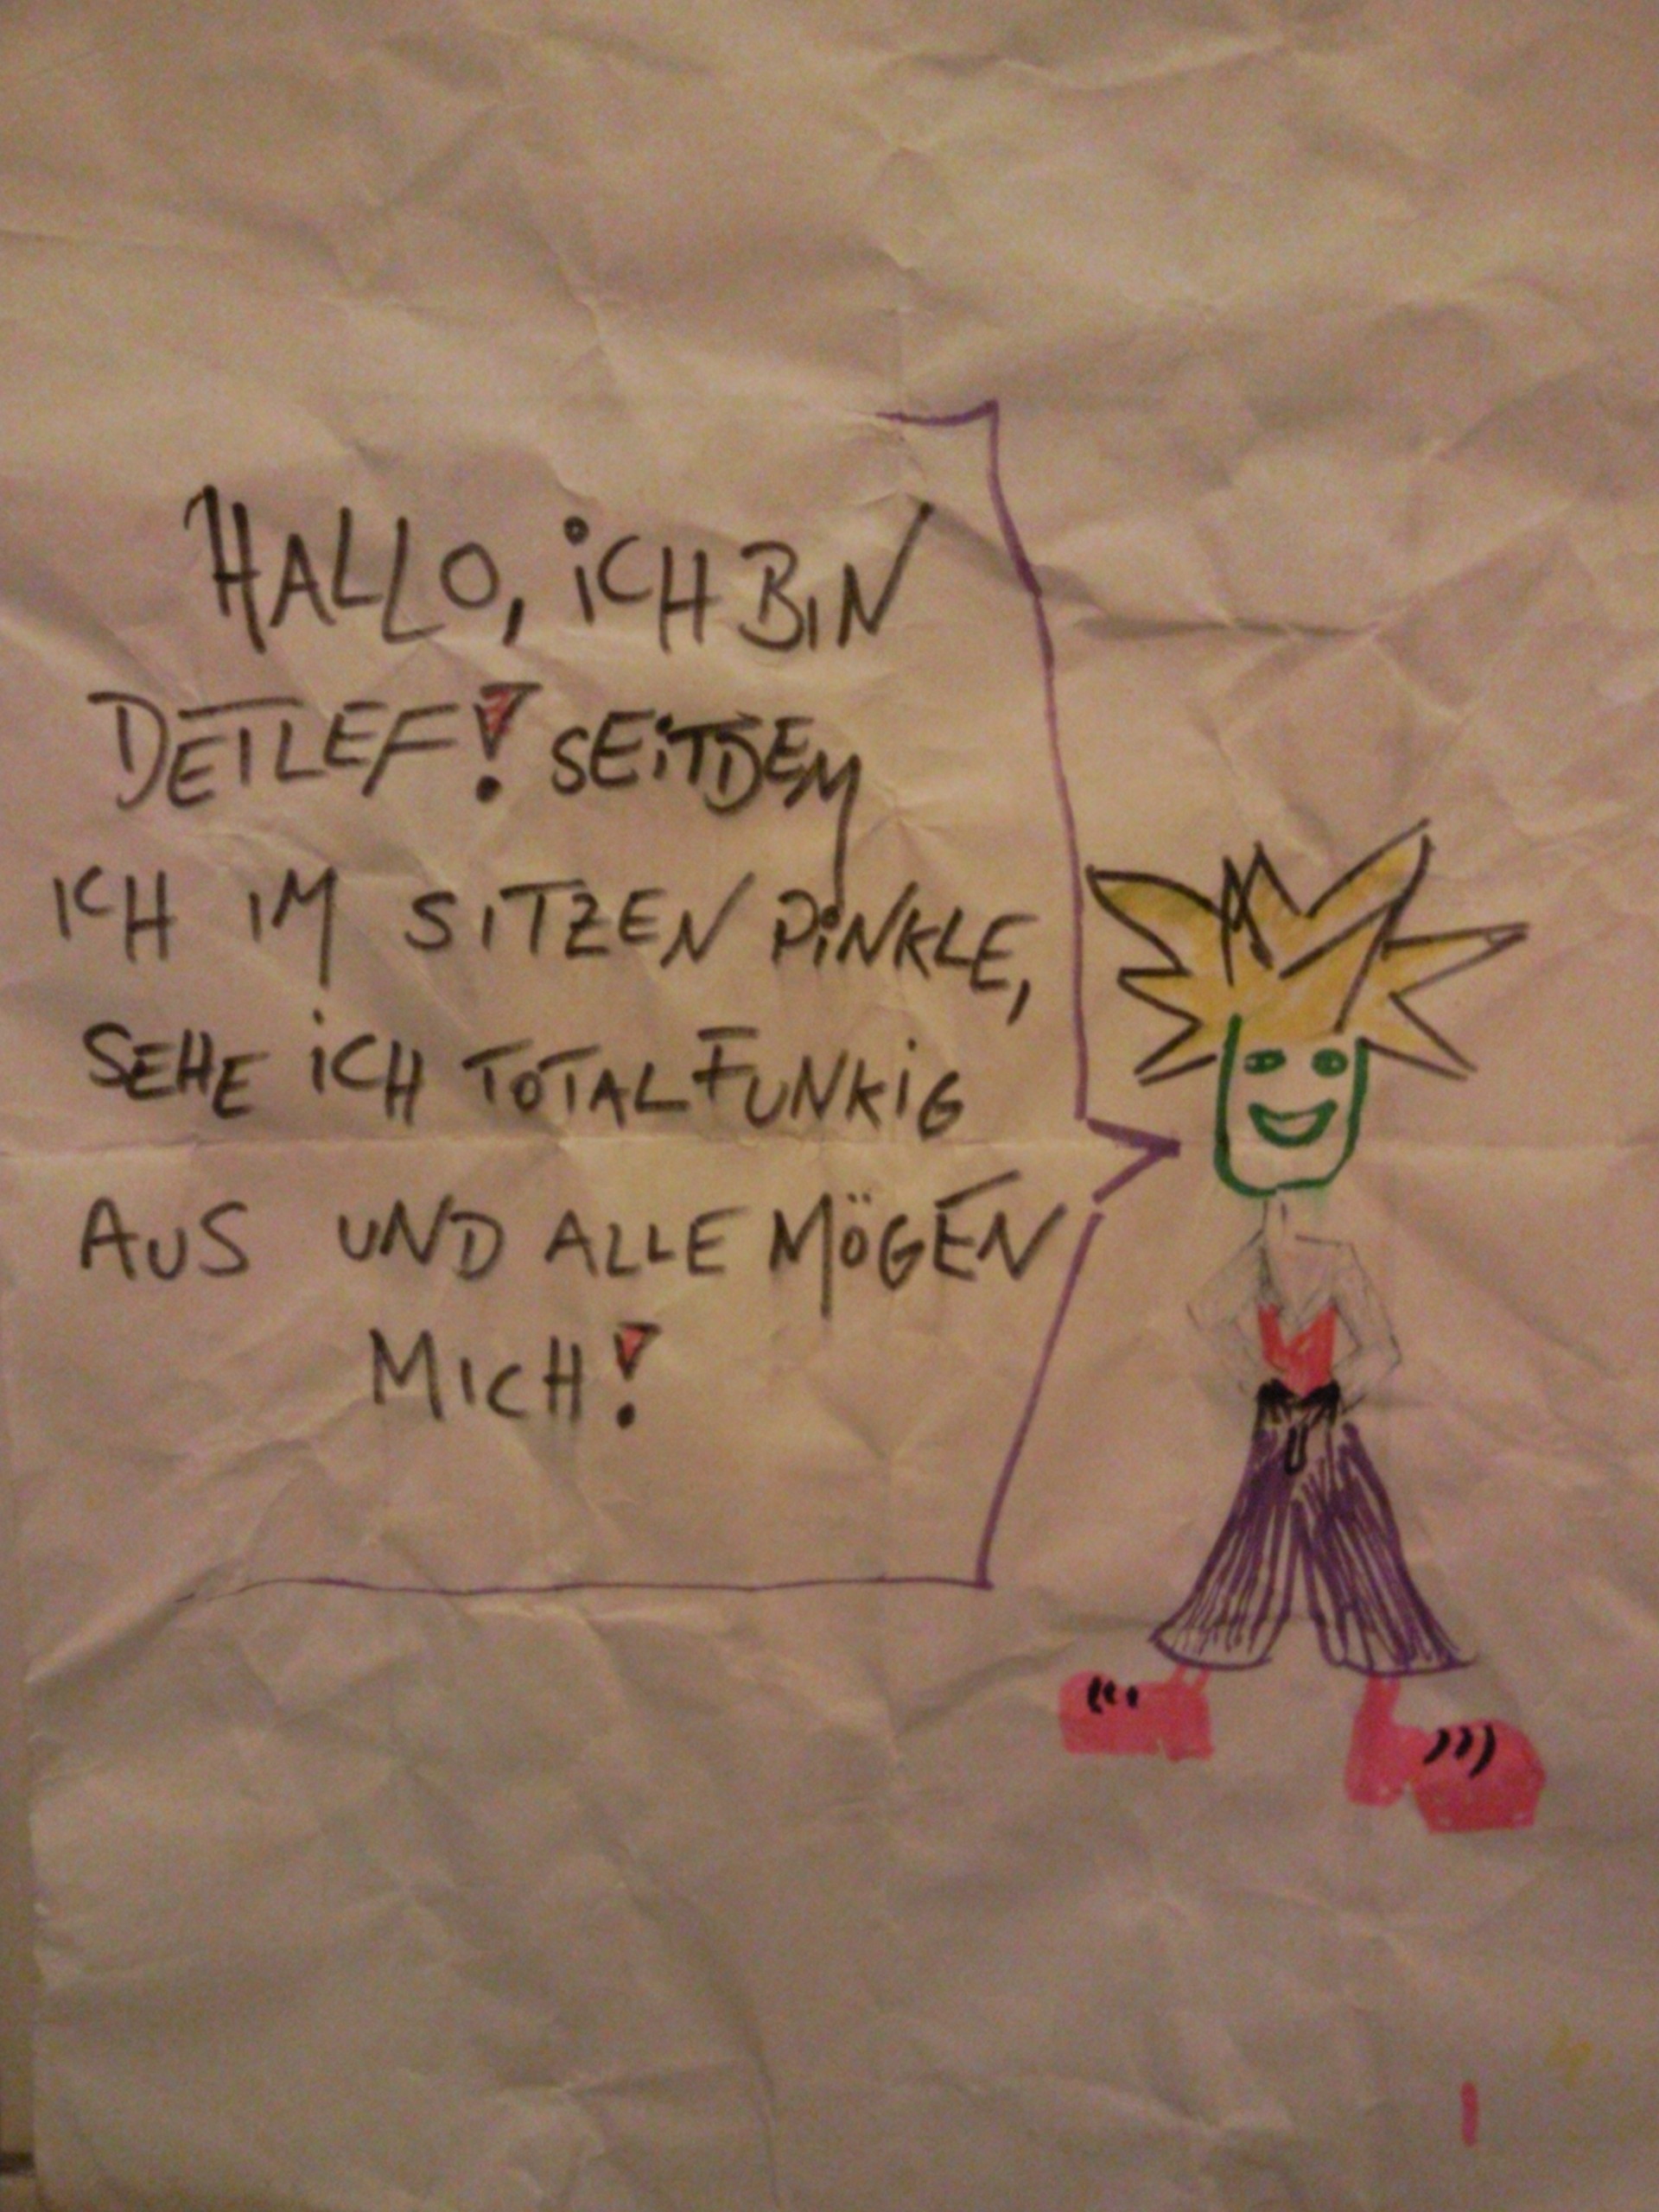 HALLO, iCH BiN
DETLEF! SEiTDEM
ICH IM SiTZEN PiNKLE,
SEHE iCH TOTAL FUNKiG
AUS UND ALLE MÖGEN
MICH!